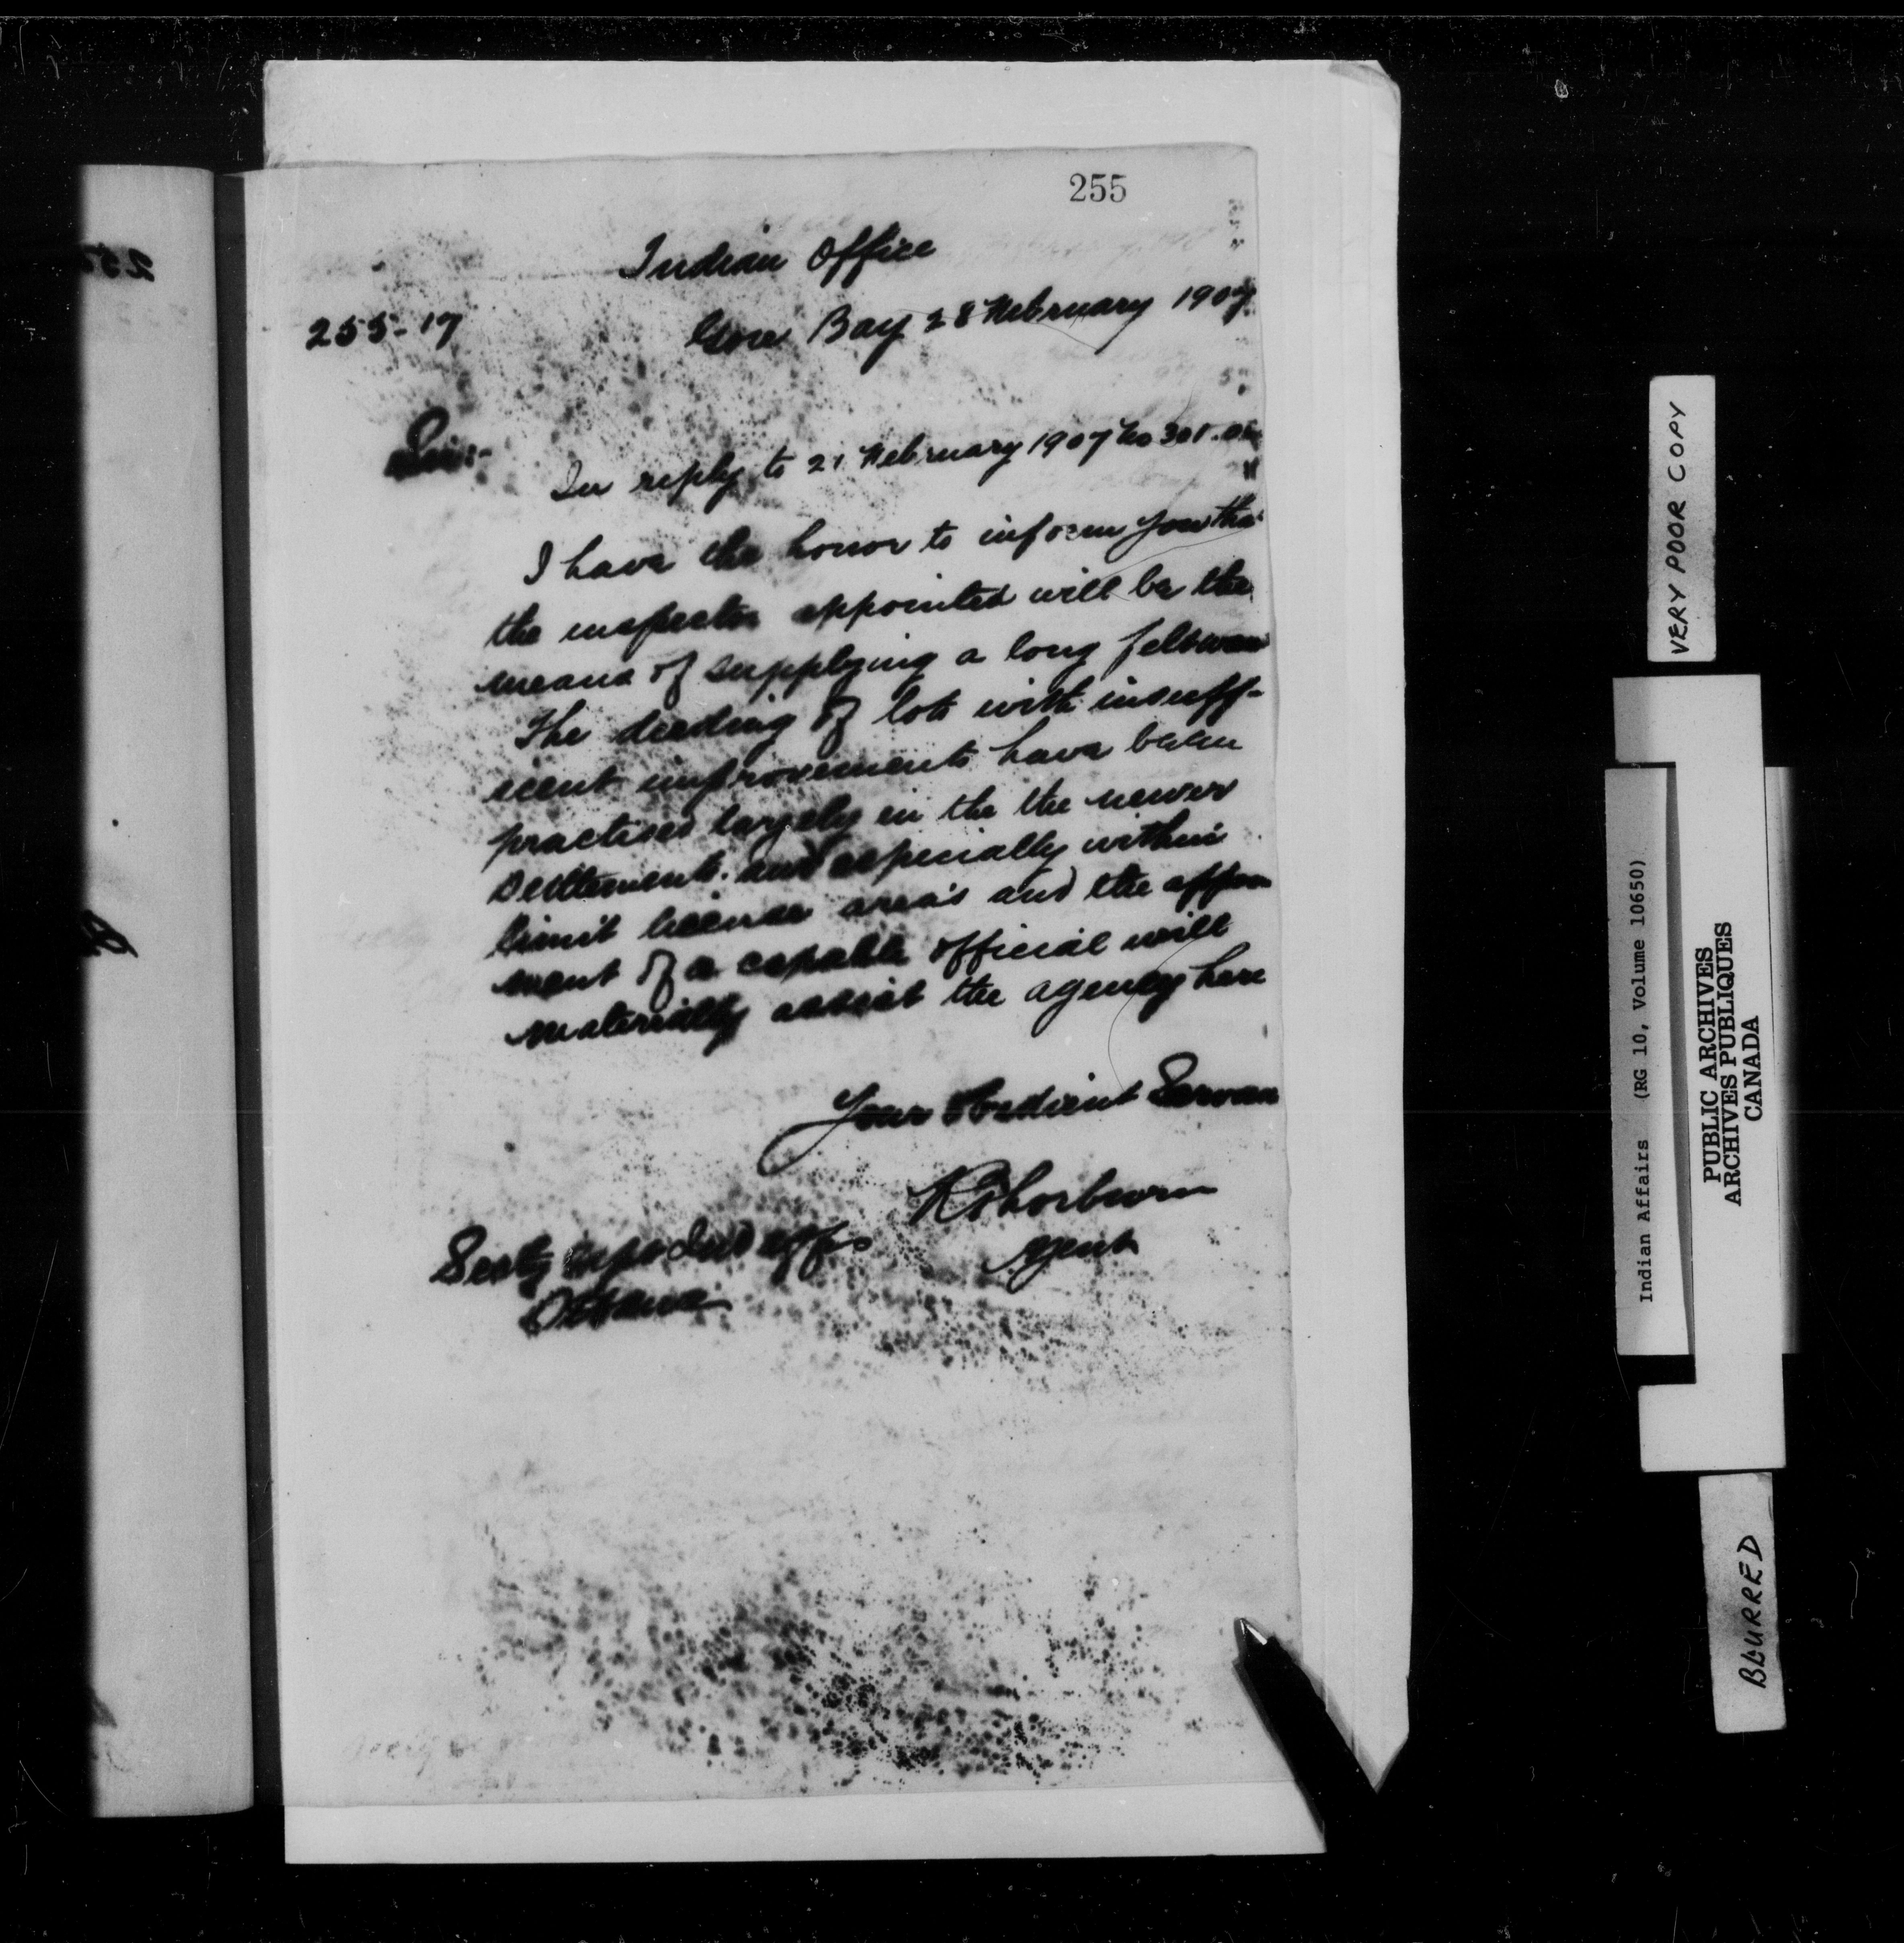 255
Indian Office
255-17
Gore Bay 28 February 1907
Sir:-
In reply to 21 February 1907 No 301.
I have the honor to inform you tha
the inspector appointed will be the
means of supplying a long felt wan
The deeding of lots with insuff-
icient improvements have been
practised largely in the the newer
settlements. and especially within
limit license area's and the appoin
ment of a capable official will
materially assist the agency here
Your Obedient Servan
R Thorburn
Agent
Secty Dept Ind Affrs
Ottawa
VERY POOR COPY
Indian Affairs (RG 10, Volume 10650)
PUBLIC ARCHIVES
ARCHIVES PUBLIQUES
CANADA
BLURRED